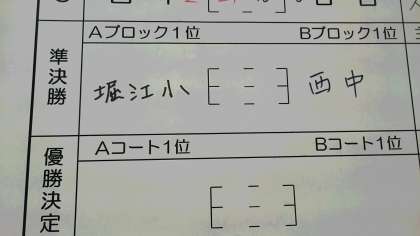 Aブロック1位 Bブロック1位
準決勝
堀江小 西中
Aコート1位 Bコート1位
優勝決定